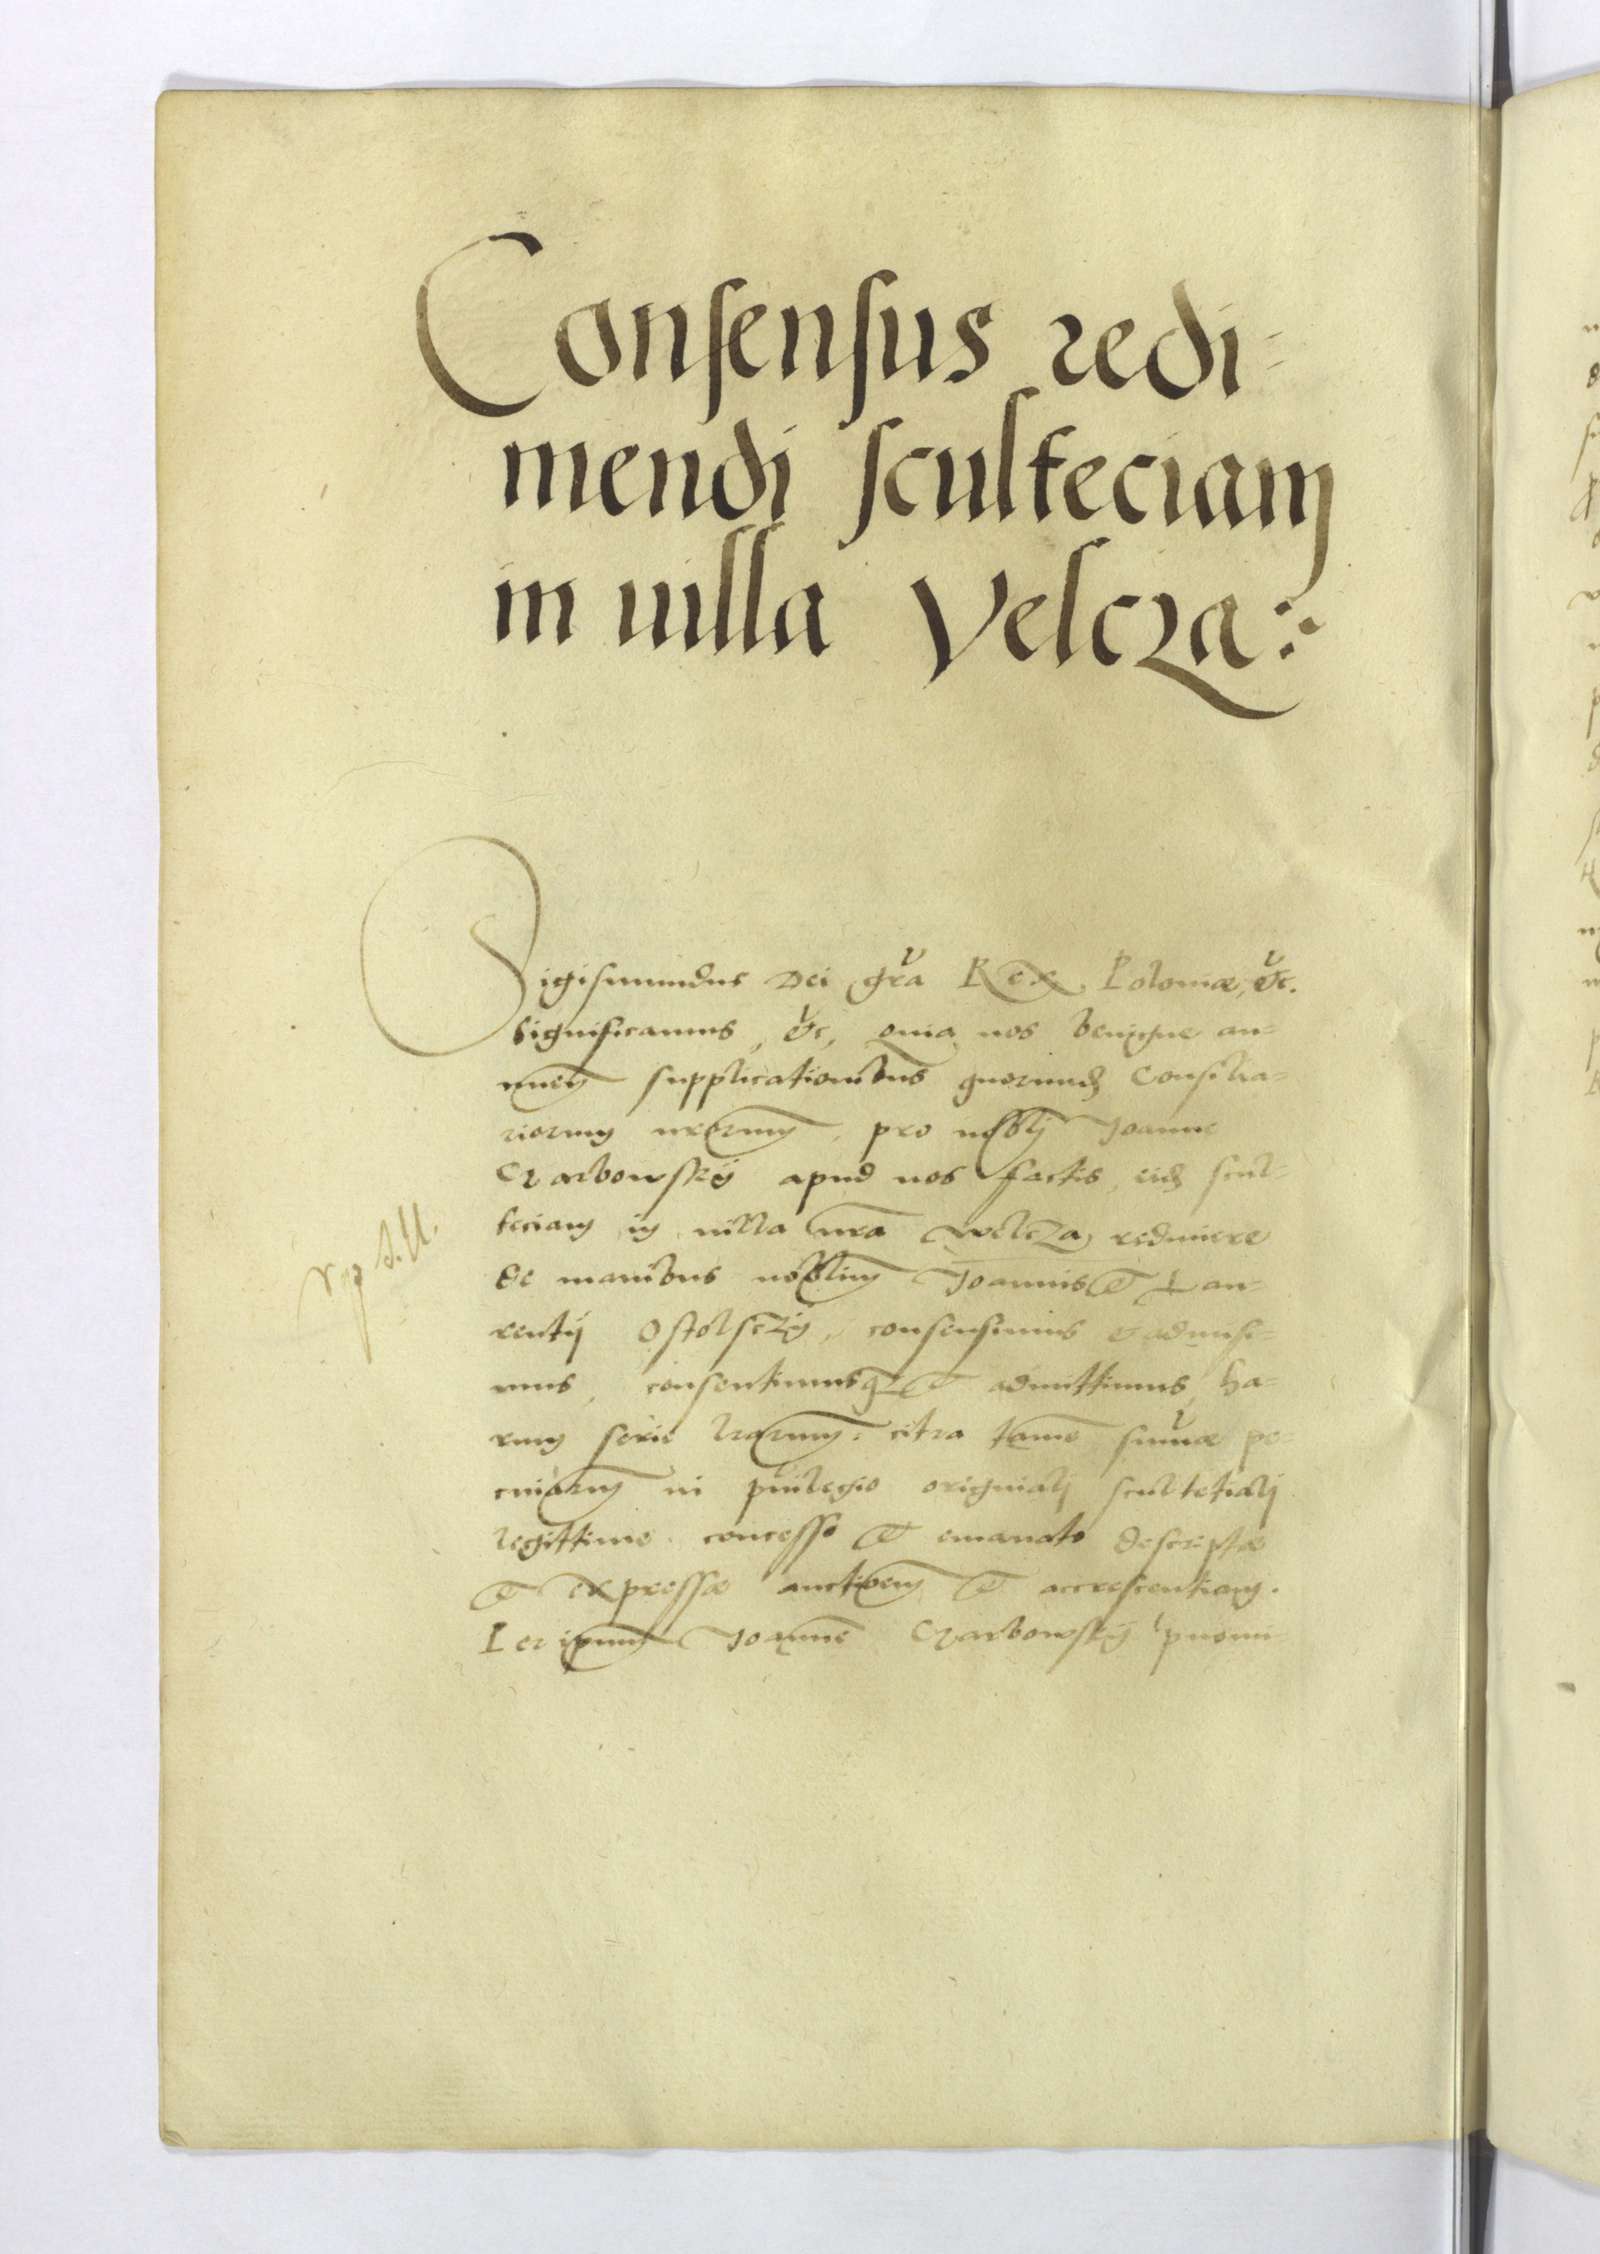 Consensus redi-
mendi sculteciam
in uilla Velcza:
Sigismundus Dei gra Rex Poloniæ, &c.
Significamus, &c, quia nos benigne an-
nuen supplicationibus quorund Consilia-
riorum nrorum, pro nobli Joanne
Czarbowskÿ apud nos factis, eid scul-
teciam in uilla nra Welcza redimere
de manibus nobilium Joannis et Lau-
rentij Ostolsczÿ, consensimus et admisi-
mus, consentimusq et admittimus, ha-
rum serie lrarum: citra tame summæ pe-
cuniarum in priuilegio originali scultetiali
legittime concesso et emanato descriptæ
et expressæ auctioem et accrescentiam.
Per ipsum Joannē Czarbowskÿ pnomi-